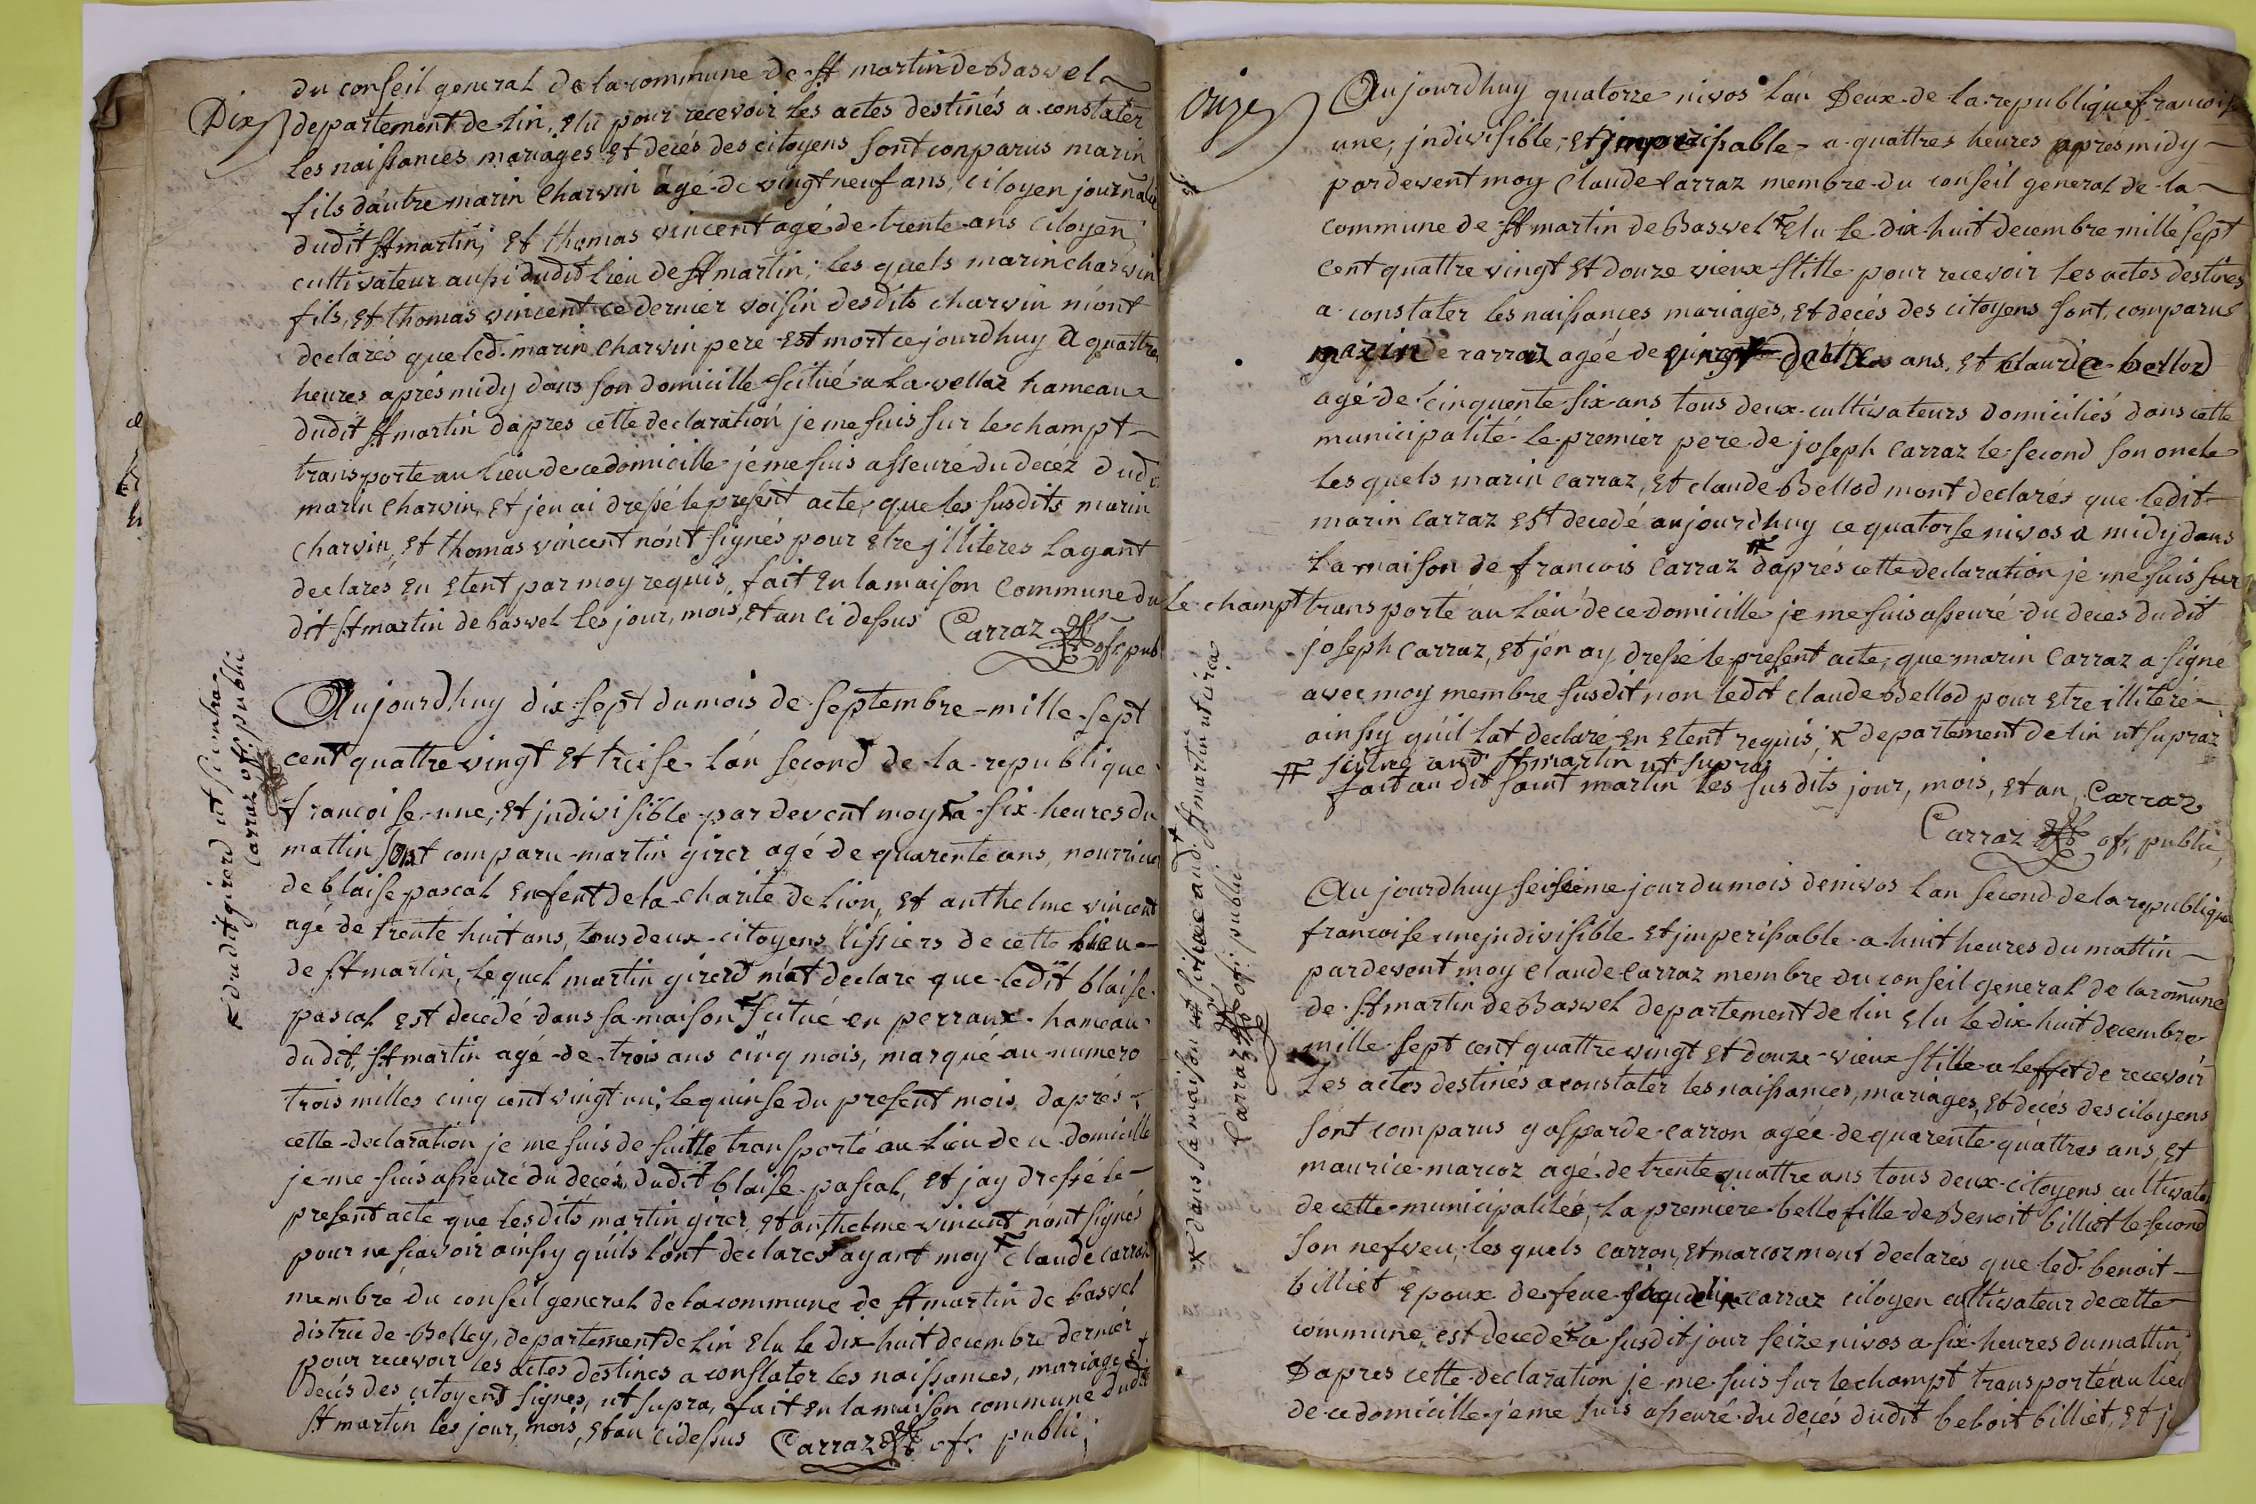 Dix
du conseil general de la commune de st martin de Baswel
departement de lin, elu pour recevoir les actes destinés a constater
les naissances mariages et decés des citoyens sont conparus marin
fils d'autre marin Charvin agé de vingt neuf ans, citoyen journalie
dudit st martin, et thomas vincent agé de trente ans citoyen
cultivateur aussi dudit lieu de st martin; les quels marin charvin
fils, et thomas vincent ce dernier voisin desdits charvin m'ont
declarés que led. marin charvin pere est mort cejourdhuy a quattre
heures aprés midy dans son domicille scitué a la vellaz hameau
dudit st martin d'apres cette declaration je me suis sur le champt
transporte au lieu de ce domicille je me suis asseuré du decéz dud.
marin charvin, et j'en ai dressé le present acte, que les susdits marin
charvin, et thomas vincent n'ont signés pour etre illiteres layant
declarés en etent par moy requis, fait en la maison Commune du
dit st martin de baswel les jour, mois, et an ci dessus Carraz of. pub
Aujourdhuy dix sept du mois de septembre mille sept
cent quattre vingt et treise l'an second de la republique
francoise une, et indivisible par devent moy a six heures du
mattin sont comparu martin girer agé de quarente ans, nourricier
de blaise pascal enfent de la charité de Lion, et anthelme vincent
agé de trente huit ans, tous deux citoyens tissiers de cette lieu
de st martin, lequel martin girerd m'at declare que ledit blaise
pascal est decédé dans sa maison scitué en perraux hameau
dudit st martin agé de trois ans cinq mois, marqué au numero
trois milles cinq cent vingt un, le quinse du present mois d'aprés
cette declaration je me suis de suitte transporté au lieu de ce domicille
je me suis asseuré du decés dudit blaise pascal, et jay dressé le
present acte que lesdits martin girer, et anthelme vincent n'ont signés
pour ne scavoir ainsy qu'ils l'ont declares ayant moy Claude Carraz
membre du conseil general de la commune de st martin de baswel
district de Belley, departement de lin elu le dix huit decembre dernier
pour recevoir les actes destines a constater les naissances, mariages et
decés des citoyens signes, ut supra, fait en la maison commune dudit
st martin les jour, mois, et an cidessus Carraz of. public,
dudit girerd ut
Carraz of. public
onze
Aujourdhuy quatorze nivos l'an Deux de la republique francoise
une, indivisible, et imperissable a quattres heures aprés midy
pardevent moy Claude Carraz membre du conseil general de la
commune de st martin de Baswel elu le dix huit decembre mille sept
cent quattre vingt et douze vieux stille pour recevoir les actes destinés
a constater les naissances mariages, et decés des citoyens sont comparus
marin carraz agé de vingt quattre ans, et claude bellod
agé de cinquente six ans tous deux cultivateurs domiciliés dans cette
municipalité le premier pere de joseph Carraz le second son oncle
les quels marin carraz, et claude Bellod m'ont declarés que ledit
marin carraz est decedé aujourdhuy ce quatorse nivos a midy dans
la maison de francois Carraz daprés cette declaration je me suis sur
le champt transporté au lieu de ce domicille je me suis asseuré du deces dudit
joseph carraz, et jen ay dressé le present acte, que marin Carraz a signé
avec moy membre susdit non ledit Claude Bellod pour etre illitéré
ainsy quil lat declaré en etent requis, departement de lin ut supraz
scitué aud. st martin ut supraz
fait au dit saint martin les susdits jour, mois, et an, Carraz
Carraz of. public,
Au jourdhuy seisieme jour du mois de nivos l'an second de la republique
francoise une indivisible et imperissable a huit heures du mattin
pardevent moy Claude Carraz membre du conseil general de la comune
de st martin de Baswel departement de lin elu le dix huit decembre
mille sept cent quattre vingt et douze vieux stille a leffet de recevoir
les actes destinés a constater les naissances, mariages, et decés des citoyens
sont comparus gasparde carron agée de quarente quattres ans, et
maurice marcoz agé de trente quattre ans tous deux citoyens cultivate
de cette municipalitée, la premiere belle fille de Benoit billiet le second
son nefveu, les quels carron, et marcoz m'ont declarés que led. benoit
billiet epoux de feue carraz citoyen cultivateur de cette
commune est decedé a susdit jour seize nivos a six heures du mattin,
D'apres cette declaration je me suis sur le champt transporté au lieu
de ce domicille, je me suis asseuré du decés dudit beboit billiet, et je
dans sa maison aud. st martin ut supra
Carraz of. public